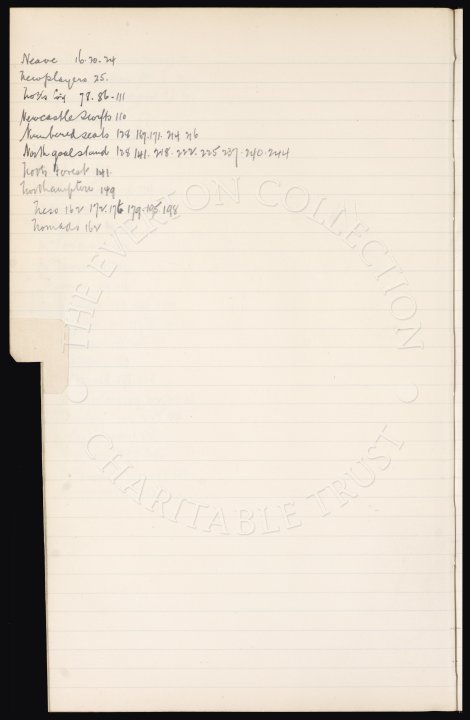 Neave 16.20.24
New players 25.
Notts Coy 78.86-111
Newcastle 110
Numbered seats 128 171. 214 216
North goal stand 128 141. 218. 222. 225 237. 240. 244
Notts Forest 141.
Northampton 149
162 172. 176 179. 195 198
Nomads 162
THE EVERTON COLLECTION
CHARITABLE TRUST